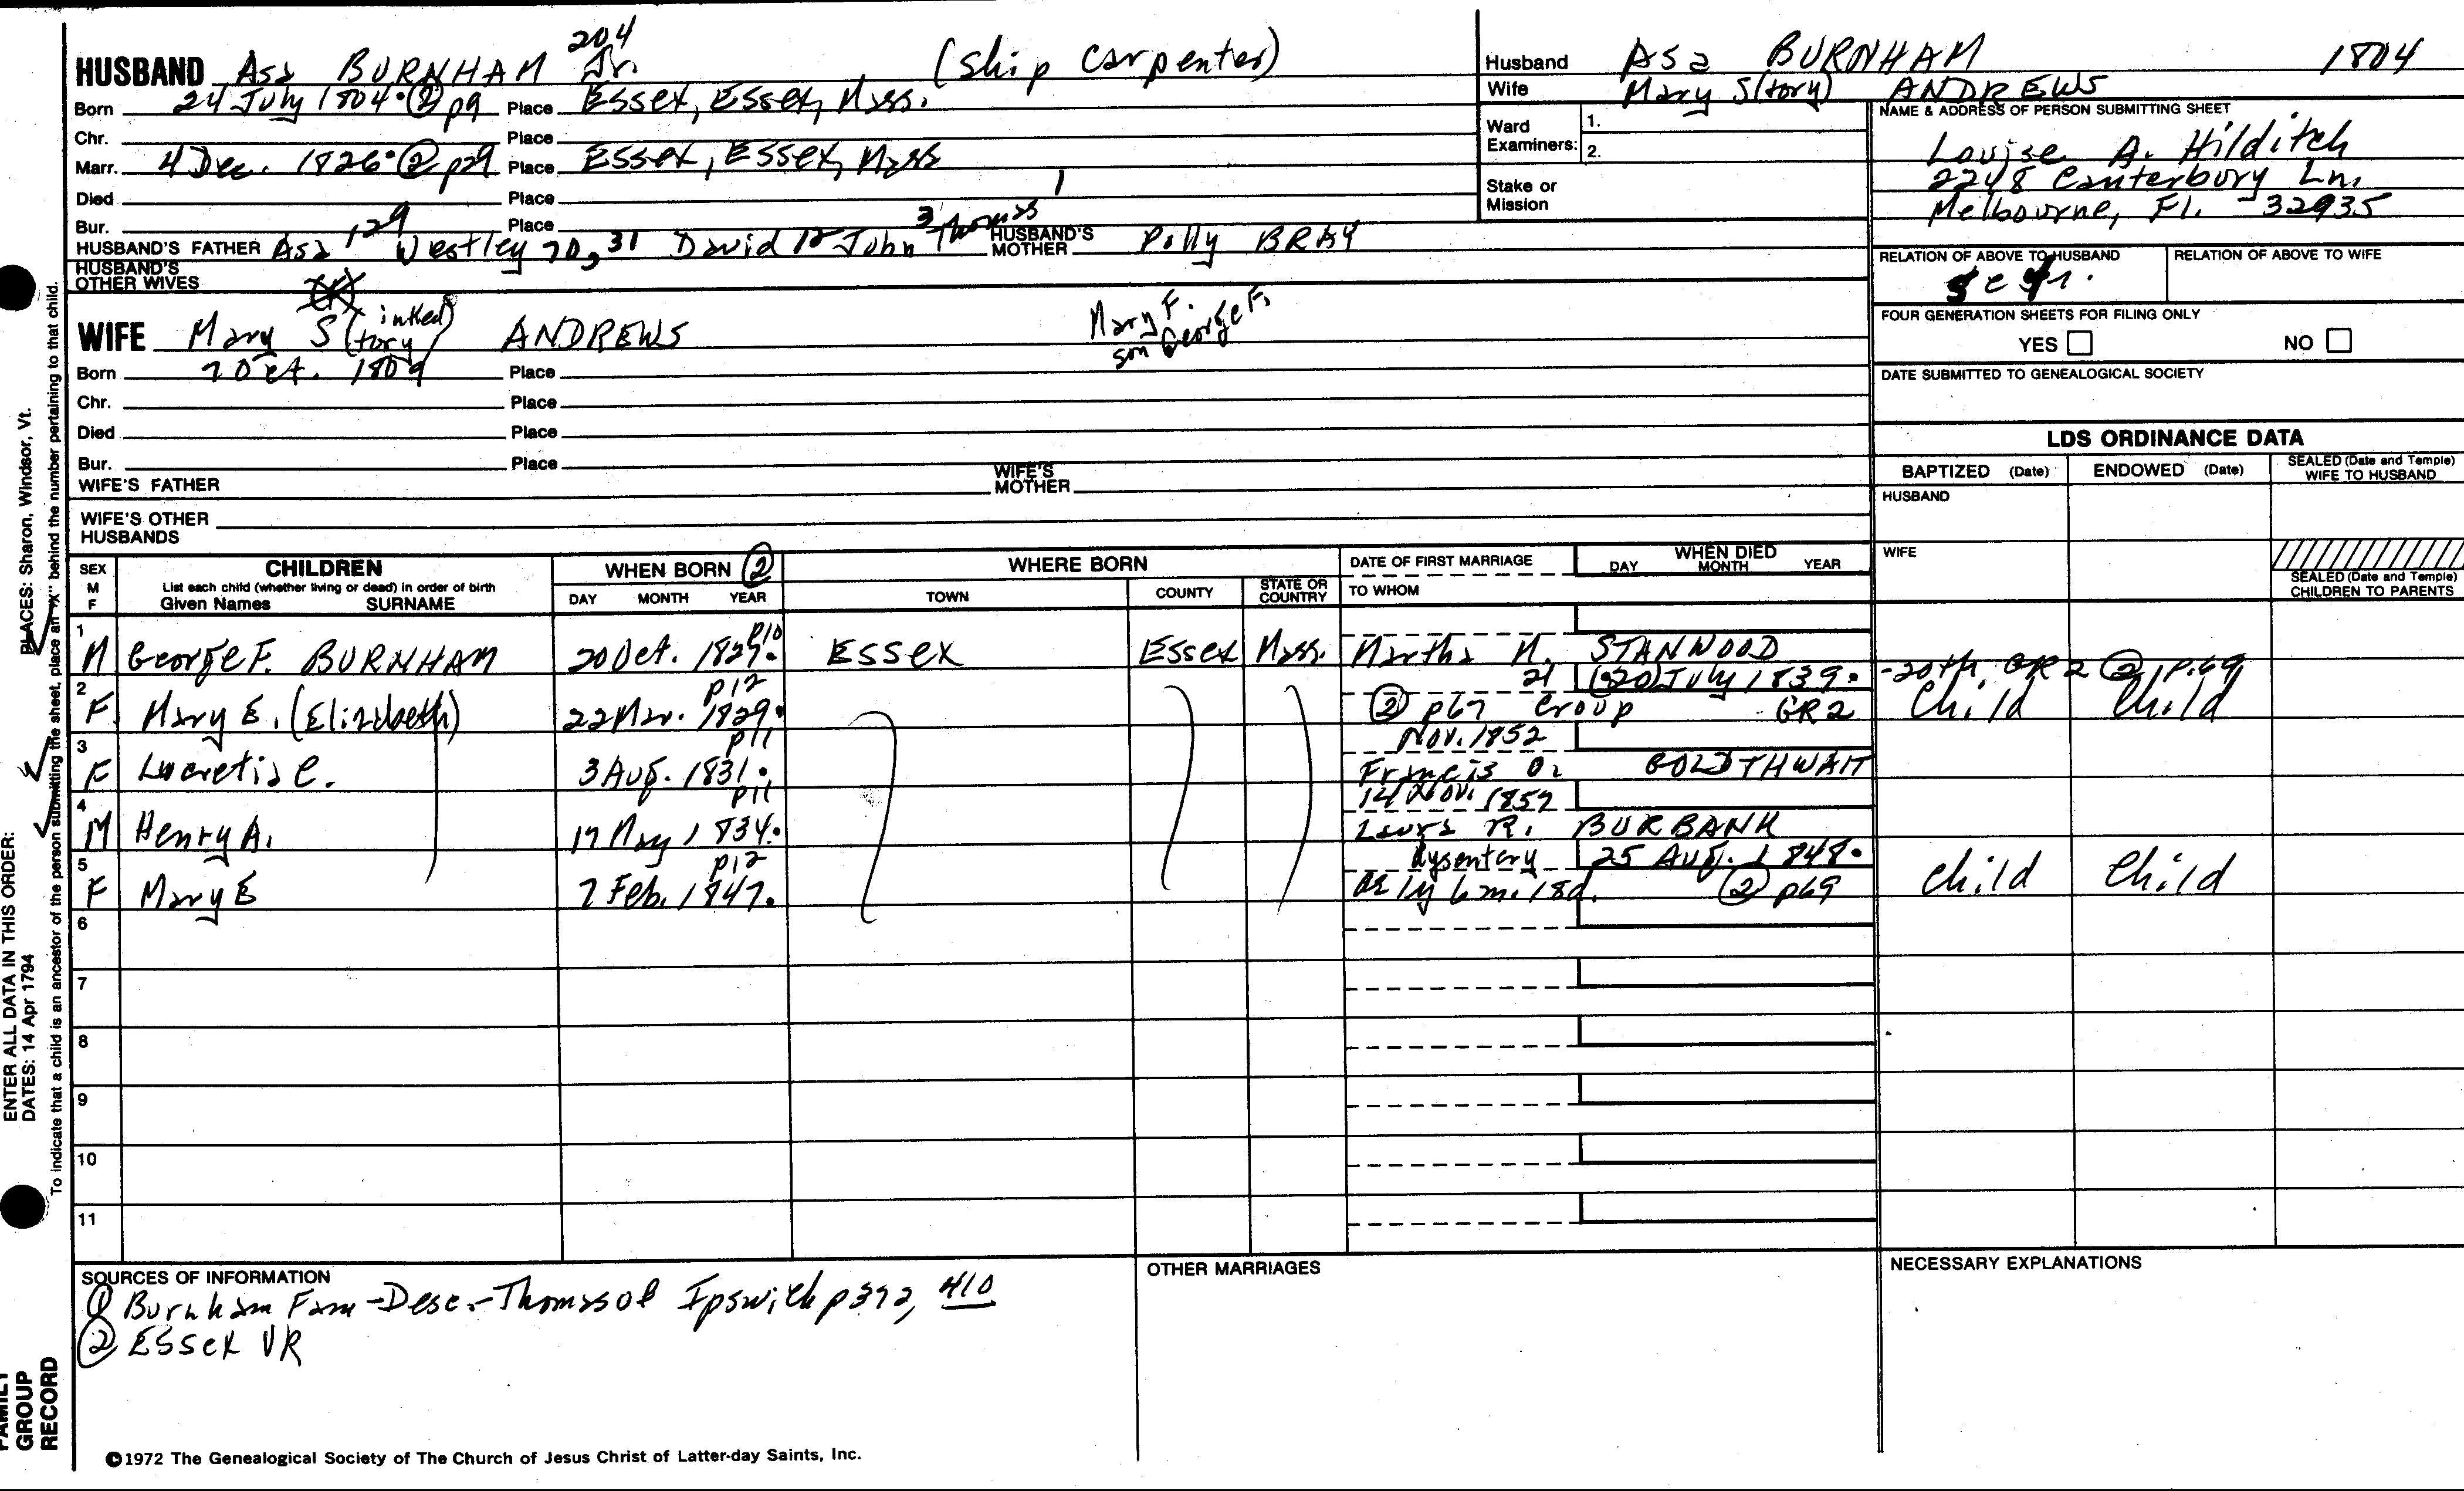 204
HUSBAND Asa BURNHAM Jr. (ship carpenter)
Born 24 July 1804. ② p9 Place Essex, Essex, Mass.
Chr. Place
Marr. 4 Dec. 1826. ② p29 Place Essex, Essex, Mass
Died Place 1
Bur. Place
HUSBAND'S FATHER Asa 129 Westley 70, 31 David 12 John 3 Thomas HUSBAND'S MOTHER Polly BRAY
HUSBAND'S OTHER WIVES
WIFE Mary S(tory) (inked) ANDREWS
Mary F.
son George F.
Born 7 Oct. 1809 Place
Chr. Place
Died Place
Bur. Place
WIFE'S FATHER WIFE'S MOTHER
WIFE'S OTHER HUSBANDS
Husband Asa BURNHAM 1804
Wife Mary S(tory) ANDREWS
Ward Examiners: 1.
2.
Stake or Mission
NAME & ADDRESS OF PERSON SUBMITTING SHEET
Louise A. Hilditch
2248 Canterbury Ln.
Melbourne, Fl. 32935
RELATION OF ABOVE TO HUSBAND RELATION OF ABOVE TO WIFE
FOUR GENERATION SHEETS FOR FILING ONLY
YES NO
DATE SUBMITTED TO GENEALOGICAL SOCIETY
LDS ORDINANCE DATA
BAPTIZED (Date) ENDOWED (Date) SEALED (Date and Temple) WIFE TO HUSBAND
HUSBAND
WIFE
SEALED (Date and Temple) CHILDREN TO PARENTS
SEX M F
CHILDREN
List each child (whether living or dead) in order of birth
Given Names SURNAME
WHEN BORN ②
DAY MONTH YEAR
WHERE BORN
TOWN COUNTY STATE OR COUNTRY
DATE OF FIRST MARRIAGE
TO WHOM
WHEN DIED
DAY MONTH YEAR
1 M George F. BURNHAM 20 Oct. 1827. p10 Essex Essex Mass. Martha M. STANWOOD
2 F Mary E. (Elizabeth) 22 Mar. 1829. p12 21 (20) July 1839. -20th, GR2 ② p.69
② p67 Croup GR2 Child Child
3 F Lucretia C. 3 Aug. 1831. p11 Nov. 1852
Francis O. GOLDTHWAIT
4 M Henry A. 17 May 1834. p11 14 Nov. 1857
Laura R. BURBANK
5 F Mary E 7 Feb. 1847. p12 dysentery 25 Aug. 1848.
ae 1y 6m. 18d. ② p69 Child Child
6
7
8
9
10
11
SOURCES OF INFORMATION
① Burnham Fam-Desc.-Thomas of Ipswich p372, 410
② Essex VR
OTHER MARRIAGES
NECESSARY EXPLANATIONS
©1972 The Genealogical Society of The Church of Jesus Christ of Latter-day Saints, Inc.
FAMILY GROUP RECORD
ENTER ALL DATA IN THIS ORDER:
DATES: 14 Apr 1794
PLACES: Sharon, Windsor, Vt.
To indicate that a child is an ancestor of the person submitting the sheet, place an "X" behind the number pertaining to that child.